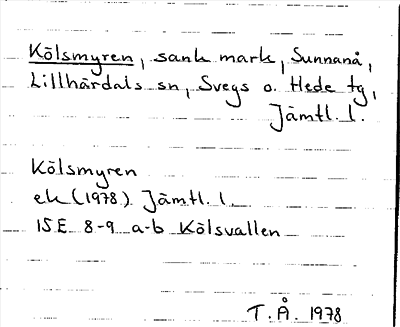 Kölsmyren, sank mark, Sunnanå,
Lillhärdals sn, Svegs o. Hede tg,
Jämtl. l.
Kölsmyren
ek (1978) Jämtl. l.
15E 8-9 a-b Kölsvallen
T. Å. 1978